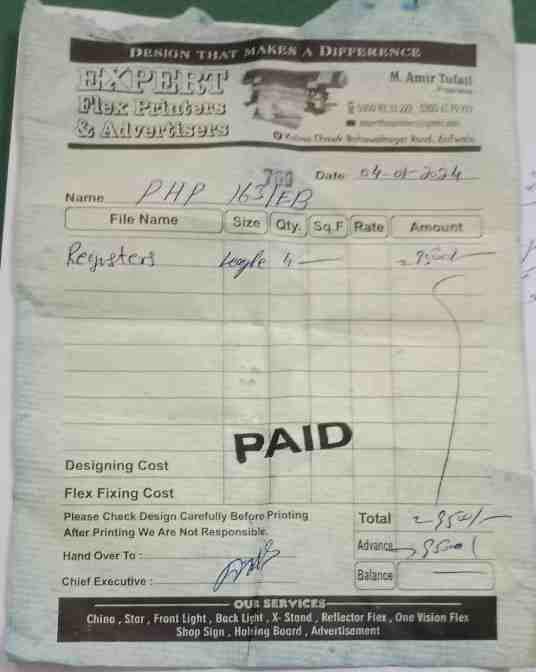 DESIGN THAT MAKES A DIFFERENCE
EXPERT
Flex Printers
& Advertisers
M. Amir Tufail
Road,
760
Date 04-01-2024
Name PHP 163/EB
File Name Size Qty. Sq.F Rate Amount
Registers Leagle 4
PAID
Designing Cost
Flex Fixing Cost
Please Check Design Carefully Before Printing
After Printing We Are Not Responsible.
Total
Hand Over To :
Advance
Chief Executive :
Balance
OUR SERVICES
China , Star , Front Light , Back Light , X- Stand , Reflector Flex , One Vision Flex
Shop Sign , Holring Board , Advertisament